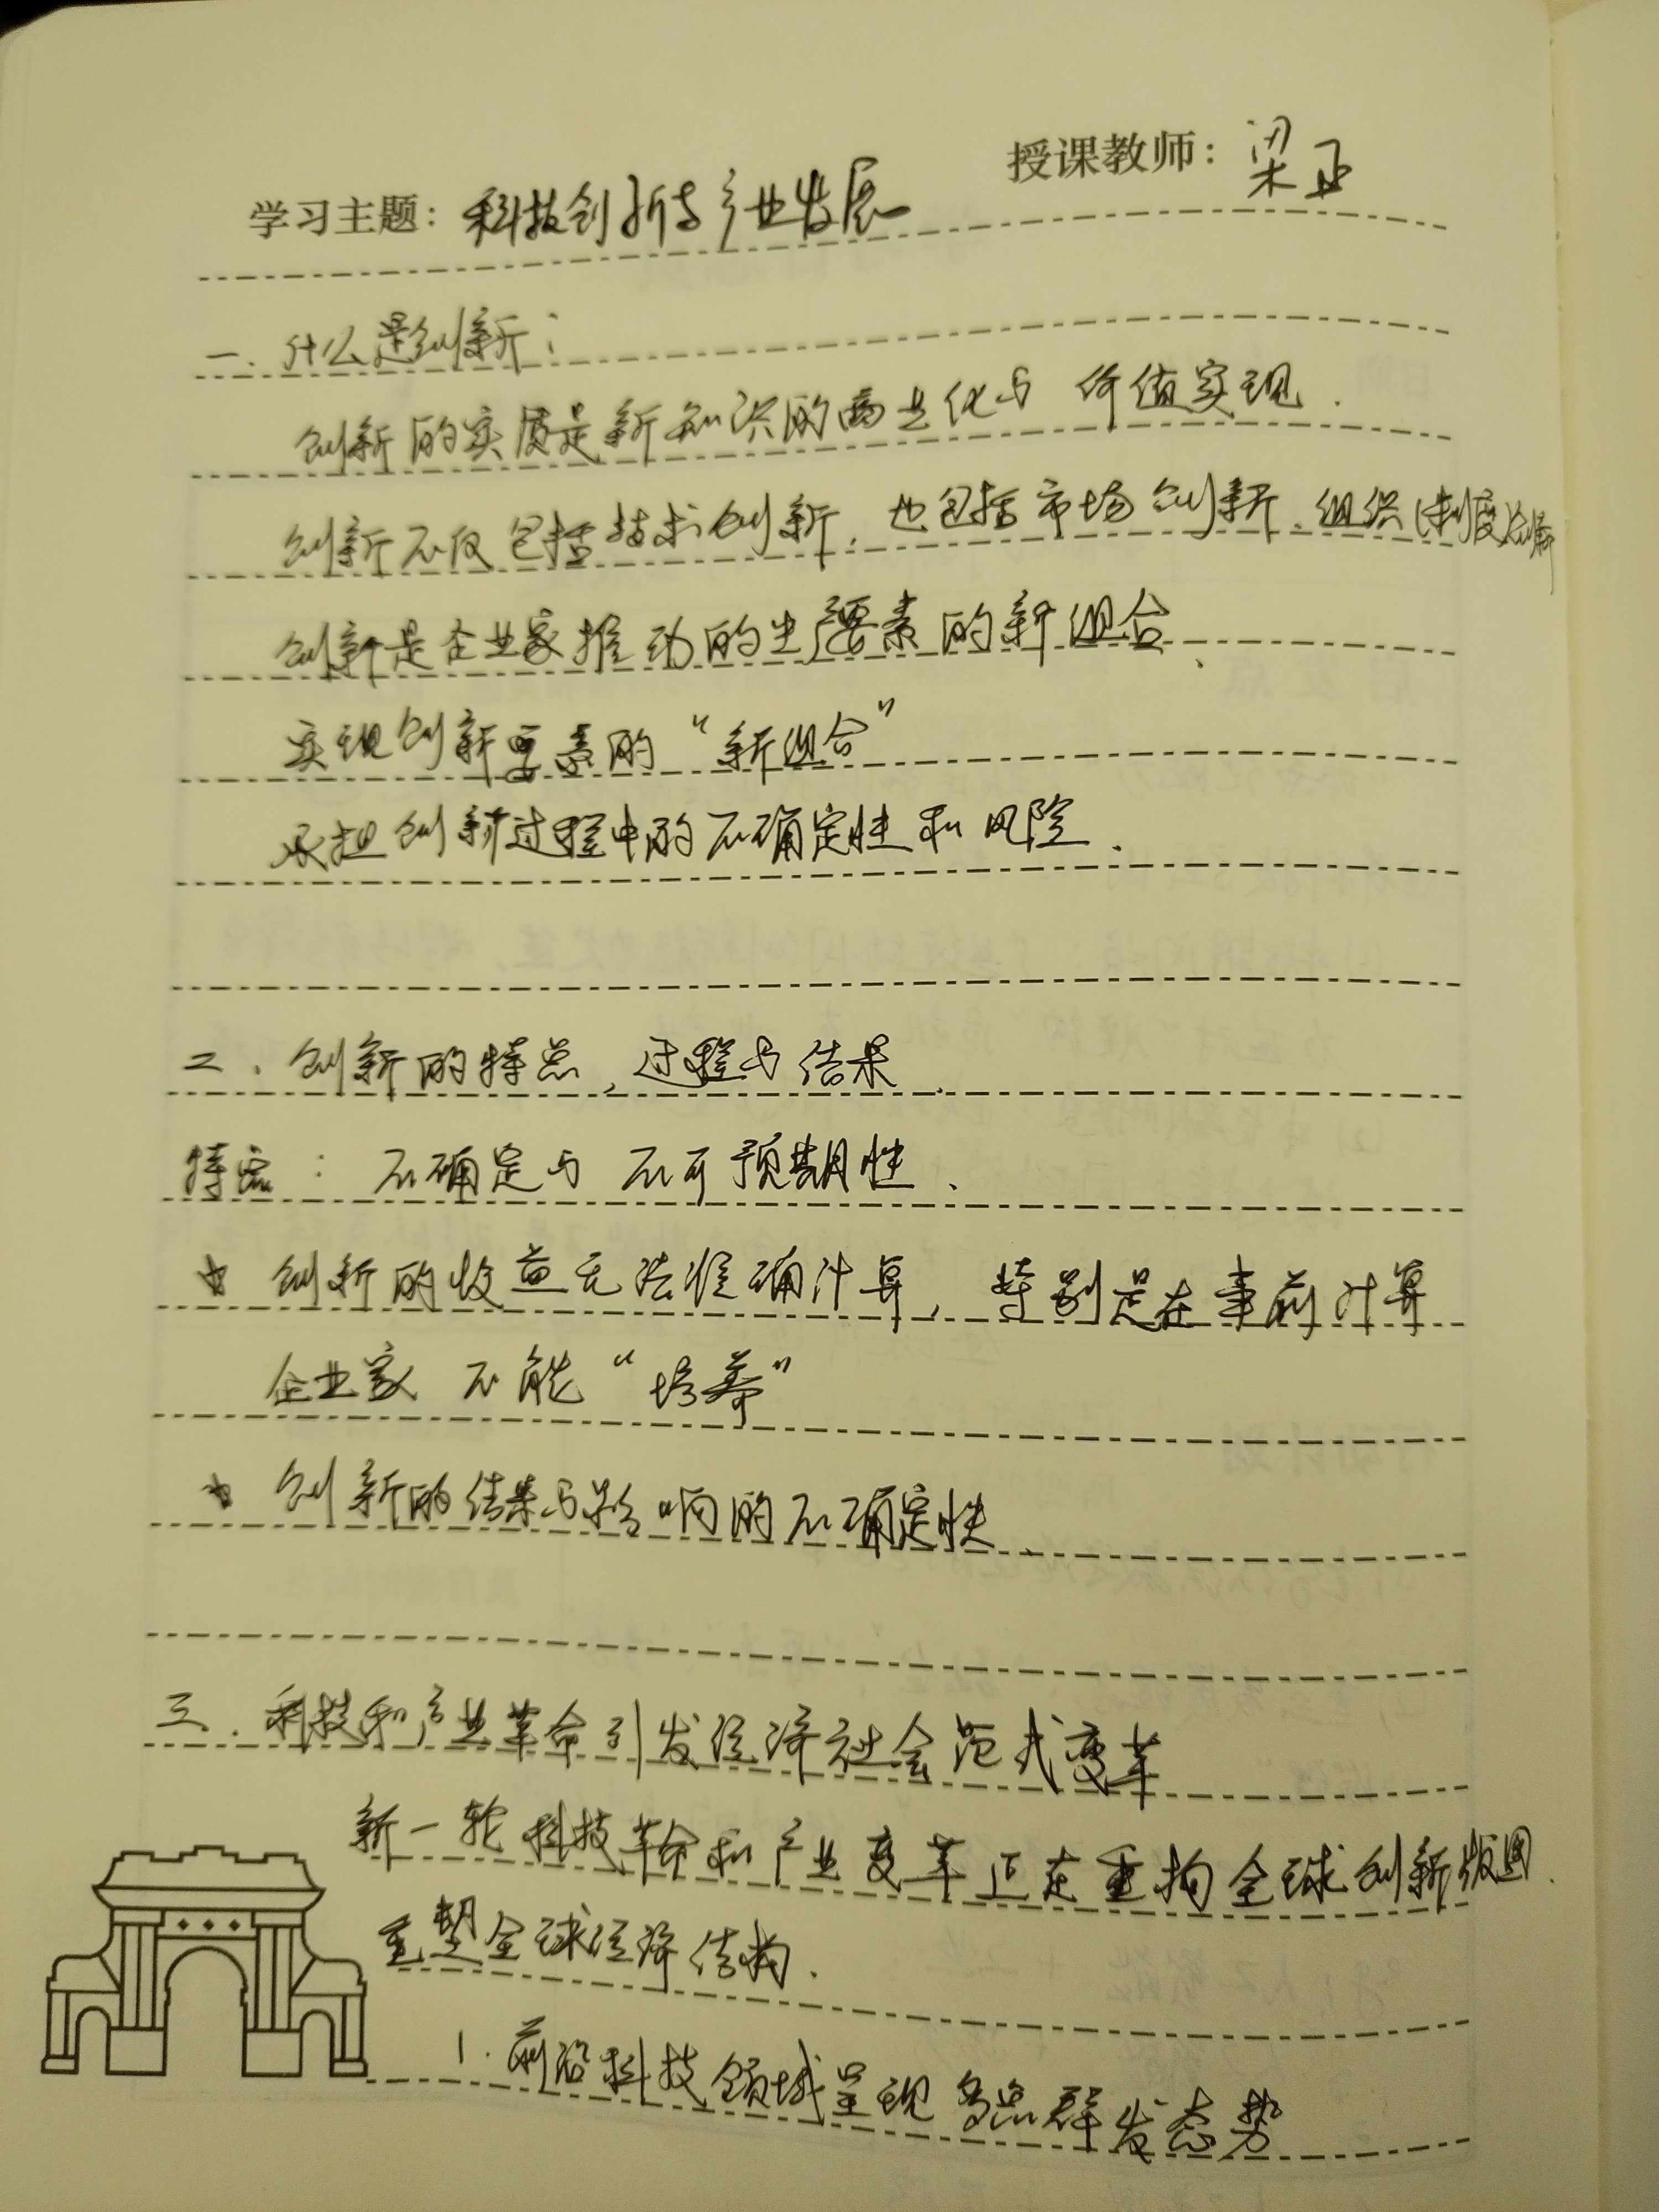 授课教师：梁正
学习主题：科技创新与产业发展
一．什么是创新：
创新的实质是新知识的商业化与价值实现．
创新不仅包括技术创新，也包括市场创新、组织（制度）创新
创新是企业家推动的生产要素的新组合．
实现创新要素的“新组合”
承担创新过程中的不确定性和风险．
二、创新的特点，过程与结果．
特点：不确定与不可预期性．
* 创新的收益无法准确计算，特别是在事前计算
企业家 不能“培养”
* 创新的结果与影响的不确定性．
三．科技和产业革命引发经济社会范式变革
新一轮科技革命和产业变革正在重构全球创新版图．
重塑全球经济结构．
1．前沿科技领域呈现多点群发态势